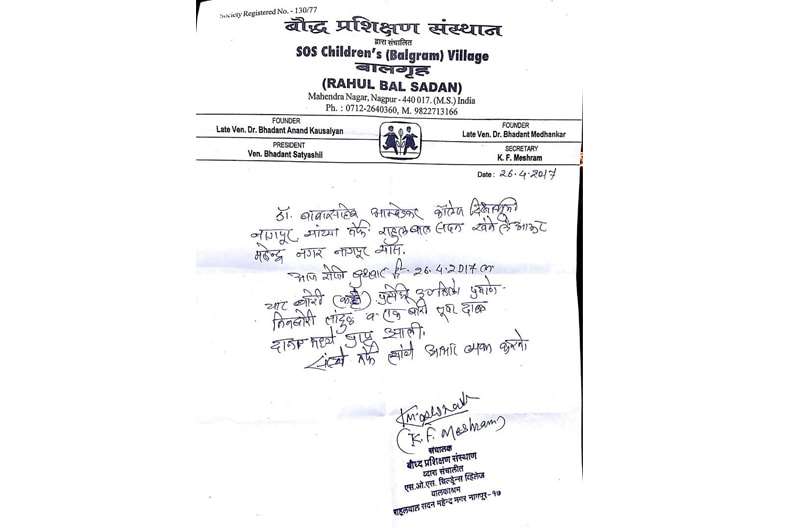 Society Registered No. - 130/77
बौद्ध प्रशिक्षण संस्थान
द्वारा संचालित
SOS Children's (Balgram) Village
बालगृह
(RAHUL BAL SADAN)
Mahendra Nagar, Nagpur - 440 017. (M.S.) India
Ph. : 0712-2640360, M. 9822713166
FOUNDER
Late Ven. Dr. Bhadant Anand Kausalyan
FOUNDER
Late Ven. Dr. Bhadant Medhankar
PRESIDENT
Ven. Bhadant Satyashil
SECRETARY
K. F. Meshram
Date : 26.4.2017
डॉ. बाबासाहेब आम्बेडकर कॉलेज दिक्षाभूमी
नागपूर यांच्या तर्फे राहुल बाल सदन
महेन्द्र नगर नागपूर यास.
आज रोजी बुधवार दि. 26.4.2017 ला
चार बोरी
तिनबोरी तांदुळ व एक बोरी तूवर दाळ
प्राप्त आली.
संस्थे तर्फे त्यांचे आभार व्यक्त करतो
(K. F. Meshram)
संचालक
बौध्द प्रशिक्षण संस्थाण
व्दारा संचालीत
एस.ओ.एस. चिल्ड्रेन्स व्हिलेज
बालकाश्रम
राहूलबाल सदन महेन्द्र नगर नागपूर-१७